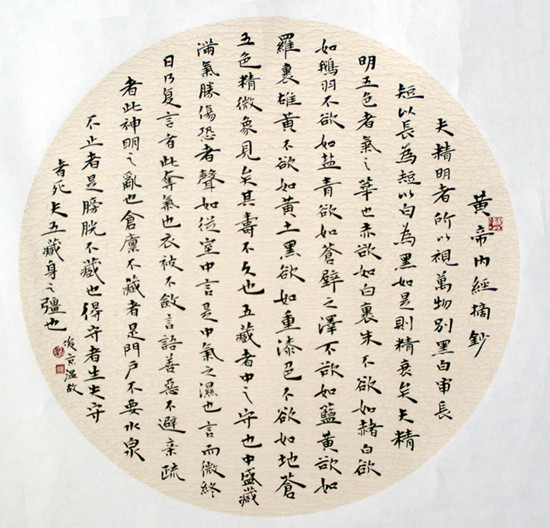 黄帝内經摘鈔
夫精明者所以視萬物別黑白审長
短以長為短以白為黑如是則精衰矣夫精
明五色者氣之華也赤欲如白裹朱不欲如赭白欲
如鵝羽不欲如盐青欲如蒼璧之澤不欲如藍黄欲如
羅裹雄黄不欲如黄土黑欲如重漆色不欲如地蒼
五色精微象見矣其壽不久也五藏者中之守也中盛藏
满氣勝傷恐者聲如從室中言是中氣之濕也言而微終
日乃复言者此奪氣也衣被不斂言語善惡不避亲疏
者此神明之亂也倉廩不藏者是門户不要水泉
不止者是膀胱不藏也得守者生失守
者死夫五藏身之彊也
京温故